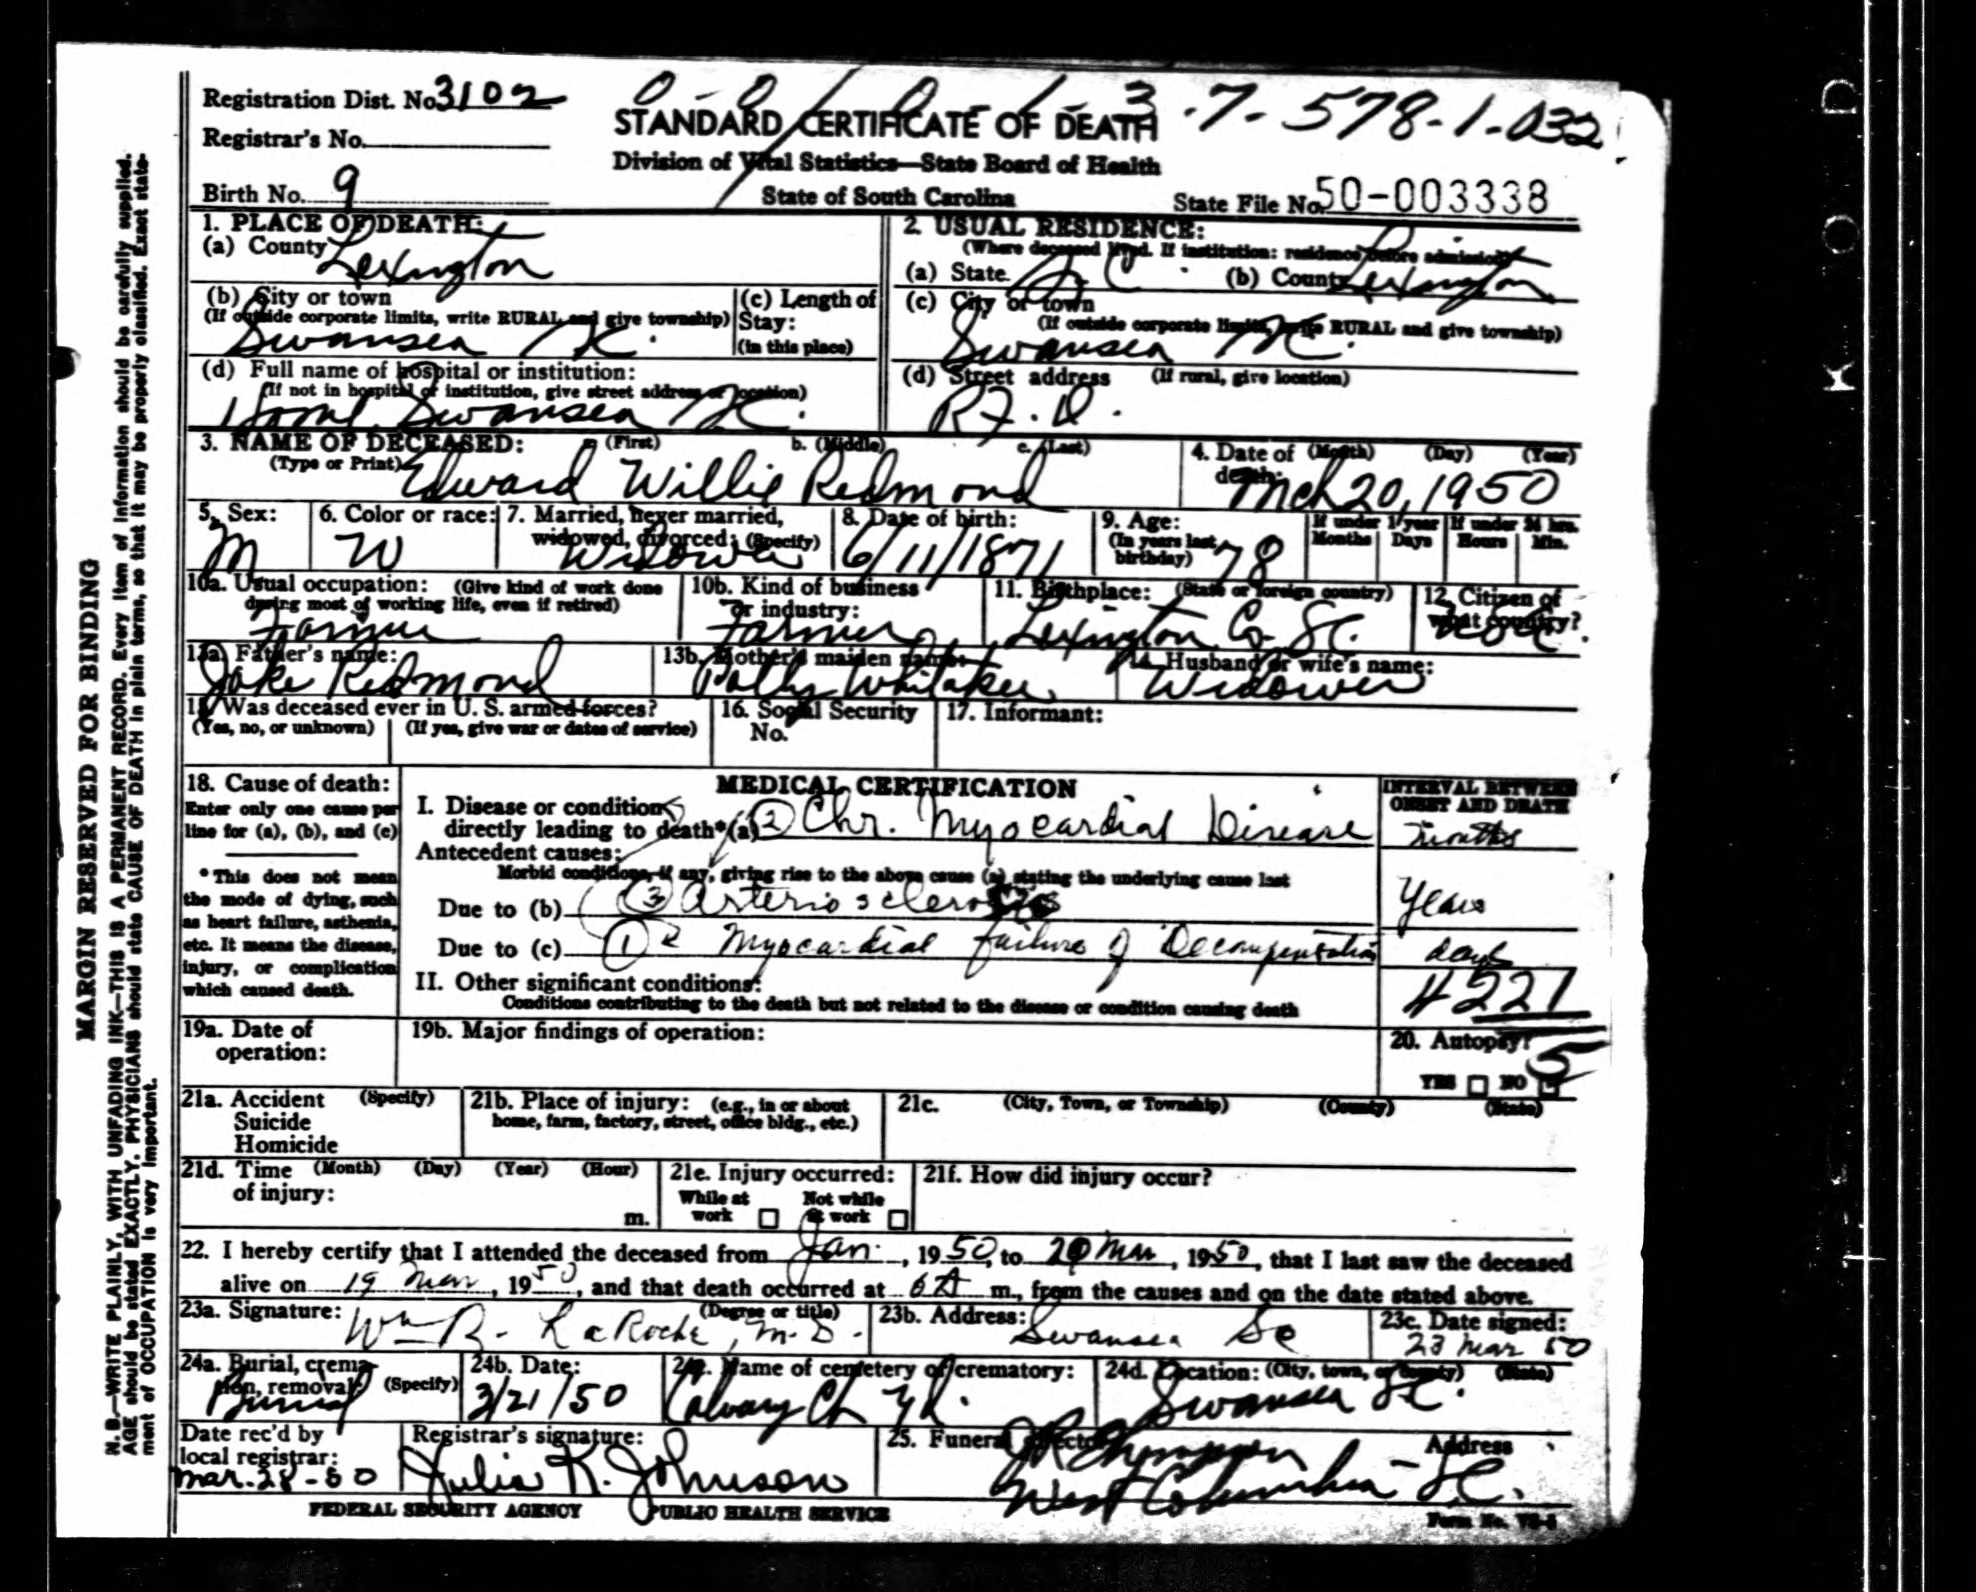 Registration Dist. No. 3102
0-0/0-1-3.7-578-1-032
STANDARD CERTIFICATE OF DEATH
Registrar's No.
Division of Vital Statistics—State Board of Health
Birth No. 9
State of South Carolina
State File No. 50-003338
1. PLACE OF DEATH:
(a) County Lexington
2. USUAL RESIDENCE:
(Where deceased lived. If institution: residence before admission)
(a) State S.C. (b) County Lexington
(b) City or town
(If outside corporate limits, write RURAL and give township)
Swansea SC.
(c) Length of
Stay:
(in this place)
(c) City or town
(If outside corporate limits, write RURAL and give township)
Swansea SC.
(d) Full name of hospital or institution:
(If not in hospital or institution, give street address or location)
Home Swansea SC.
(d) Street address (If rural, give location)
R.F.D.
3. NAME OF DECEASED: a. (First) b. (Middle) c. (Last)
(Type or Print) Edward Willie Redmond
4. Date of (Month) (Day) (Year)
death: Mch 20, 1950
5. Sex:
M
6. Color or race:
W
7. Married, never married,
widowed, divorced: (Specify)
Widower
8. Date of birth:
6/11/1871
9. Age:
(In years last
birthday) 78
If under 1 year
Months Days
If under 24 hrs.
Hours Min.
10a. Usual occupation: (Give kind of work done
during most of working life, even if retired)
Farmer
10b. Kind of business
or industry:
Farmer
11. Birthplace: (State or foreign country)
Lexington Co. SC.
12. Citizen of
what country?
13a. Father's name:
Jake Redmond
13b. Mother's maiden name:
Polly Whitaker
14. Husband or wife's name:
Widower
15. Was deceased ever in U. S. armed forces?
(Yes, no, or unknown) (If yes, give war or dates of service)
16. Social Security
No.
17. Informant:
18. Cause of death:
Enter only one cause per
line for (a), (b), and (c)
* This does not mean
the mode of dying, such
as heart failure, asthenia,
etc. It means the disease,
injury, or complication
which caused death.
MEDICAL CERTIFICATION
INTERVAL BETWEEN
ONSET AND DEATH
I. Disease or condition
directly leading to death* (a) 2 Chr. Myocardial Disease months
Antecedent causes:
Morbid conditions, if any, giving rise to the above cause (a) stating the underlying cause last
Due to (b) 3 Arteriosclerosis Years
Due to (c) 1 Myocardial failure & Decompensation days
II. Other significant conditions:
Conditions contributing to the death but not related to the disease or condition causing death
4221
19a. Date of
operation:
19b. Major findings of operation:
20. Autopsy?
5
YES NO
21a. Accident (Specify)
Suicide
Homicide
21b. Place of injury: (e.g., in or about
home, farm, factory, street, office bldg., etc.)
21c. (City, Town, or Township) (County) (State)
21d. Time (Month) (Day) (Year) (Hour)
of injury: m.
21e. Injury occurred:
While at work Not while at work
21f. How did injury occur?
22. I hereby certify that I attended the deceased from Jan., 1950, to 20 Mar, 1950, that I last saw the deceased
alive on 19 Mar, 1950, and that death occurred at 6 A m., from the causes and on the date stated above.
23a. Signature: (Degree or title)
Wm R. LaRoche, M.D.
23b. Address:
Swansea SC
23c. Date signed:
23 Mar 50
24a. Burial, crema-
tion, removal: (Specify)
Burial
24b. Date:
3/21/50
24c. Name of cemetery or crematory:
Calvary Ch Yd.
24d. Location: (City, town, or county) (State)
Swansea S.C.
Date rec'd by
local registrar:
Mar. 28-50
Registrar's signature:
Julia K. Johnson
25. Funeral director Address
J R Thompson
West Columbia S.C.
FEDERAL SECURITY AGENCY PUBLIC HEALTH SERVICE
Form No. VS-5
MARGIN RESERVED FOR BINDING
N. B.—WRITE PLAINLY, WITH UNFADING INK—THIS IS A PERMANENT RECORD. Every item of information should be carefully supplied.
AGE should be stated EXACTLY. PHYSICIANS should state CAUSE OF DEATH in plain terms, so that it may be properly classified. Exact state-
ment of OCCUPATION is very important.
K O D